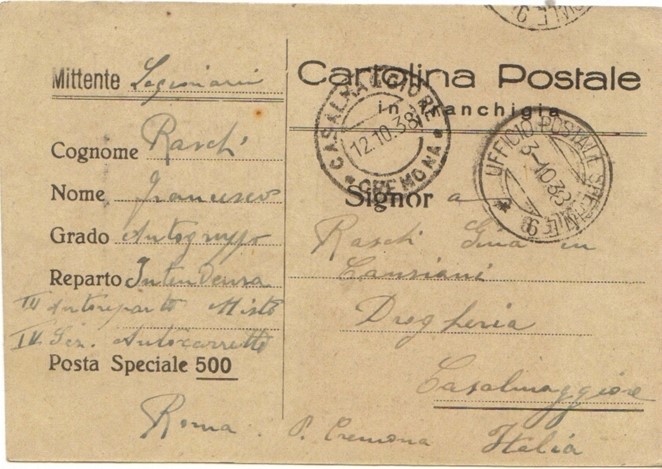 Mittente Legionari
Cognome Raschi
Nome Francesco
Grado Autogruppo
Reparto Intendenza
IV Autoreparto Misto
IV. Sez. Autocarrette
Posta Speciale 500
Roma
Cartolina Postale
in franchigia
CASALMAGGIORE
12.10.38
* CREMONA *
UFFICIO POSTALE SPECIALE 9
3-10.38
*
Signor a
Raschi Gina in
Cansiani
Drogheria
Casalmaggiore
P. Cremona Italia